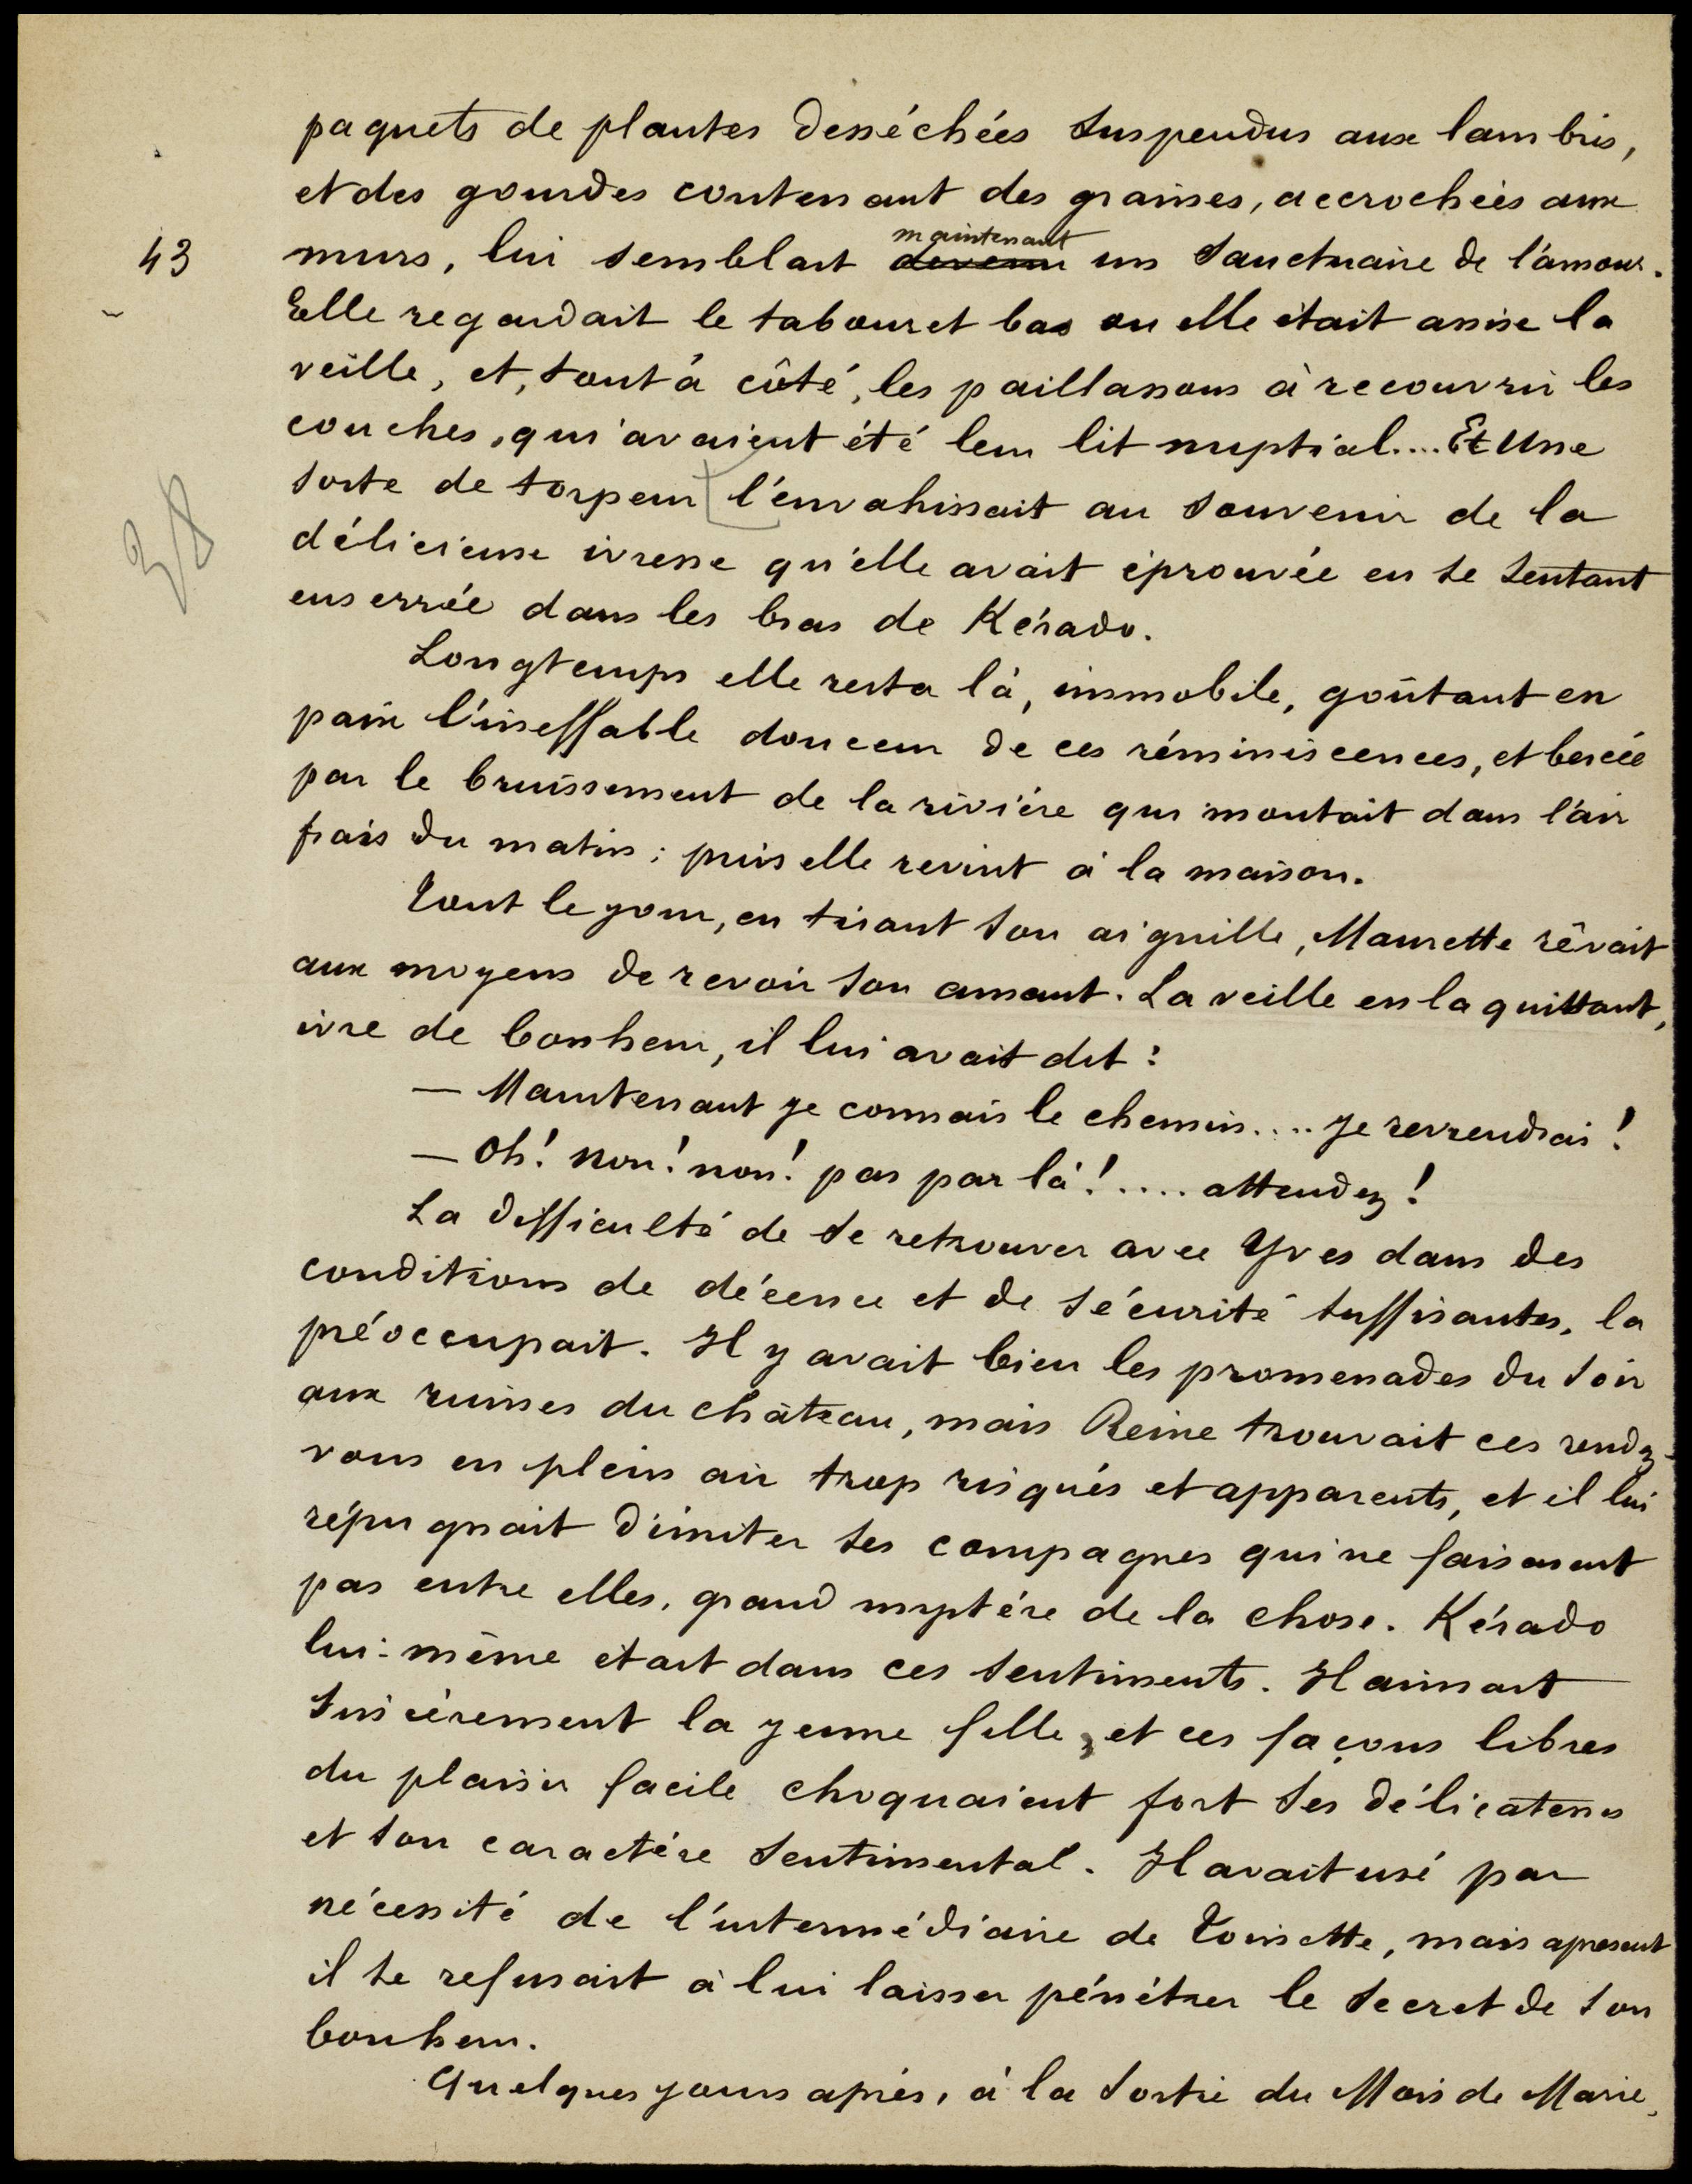 paquets de plantes desséchées suspendus aux lambris,
et des gourdes contenant des graines, accrochées aux
maintenant
43 murs, lui semblait devenu un sanctuaire de l'amour.
Elle regardait le tabouret bas ou elle était assise la
veille, et, tout à côté, les paillassons à recouvrir les
couches, qui avaient été leur lit nuptial.... Et Une
sorte de torpeur l'envahissait au souvenir de la
délicieuse ivresse qu'elle avait éprouvée en se sentant
enserrée dans les bras de Kérado.
Longtemps elle resta là, immobile, goûtant en
paix l'ineffable douceur de ces réminiscences, et bercée
par le bruissement de la rivière qui montait dans l'air
frais du matin ; puis elle revint à la maison.
Tout le jour, en tirant son aiguille, Maurette rêvait
aux moyens de revoir son amant. La veille en la quittant,
ivre de bonheur, il lui avait dit :
— Maintenant je connais le chemin.... je reviendrai !
— Oh ! non ! non ! pas par là !..... attendez !
La difficulté de se retrouver avec Yves dans des
conditions de décence et de sécurité suffisantes, la
préoccupait. Il y avait bien les promenades du soir
aux ruines du château, mais Reine trouvait ces rendez-
vous en plein air trop risqués et apparents, et il lui
répugnait d'imiter ses compagnes qui ne faisaient
pas entre elles, grand mystère de la chose. Kérado
lui-même était dans ces sentiments. Il aimait
sincèrement la jeune fille, et ces façons libres
du plaisir facile choquaient fort ses délicatesses
et son caractère sentimental. Il avait usé par
nécessité de l'intermédiaire de Toinette, mais apresent
il se refusait à lui laisser pénétrer le secret de son
bonheur.
Quelques jours après, à la sortie du Mois de Marie,